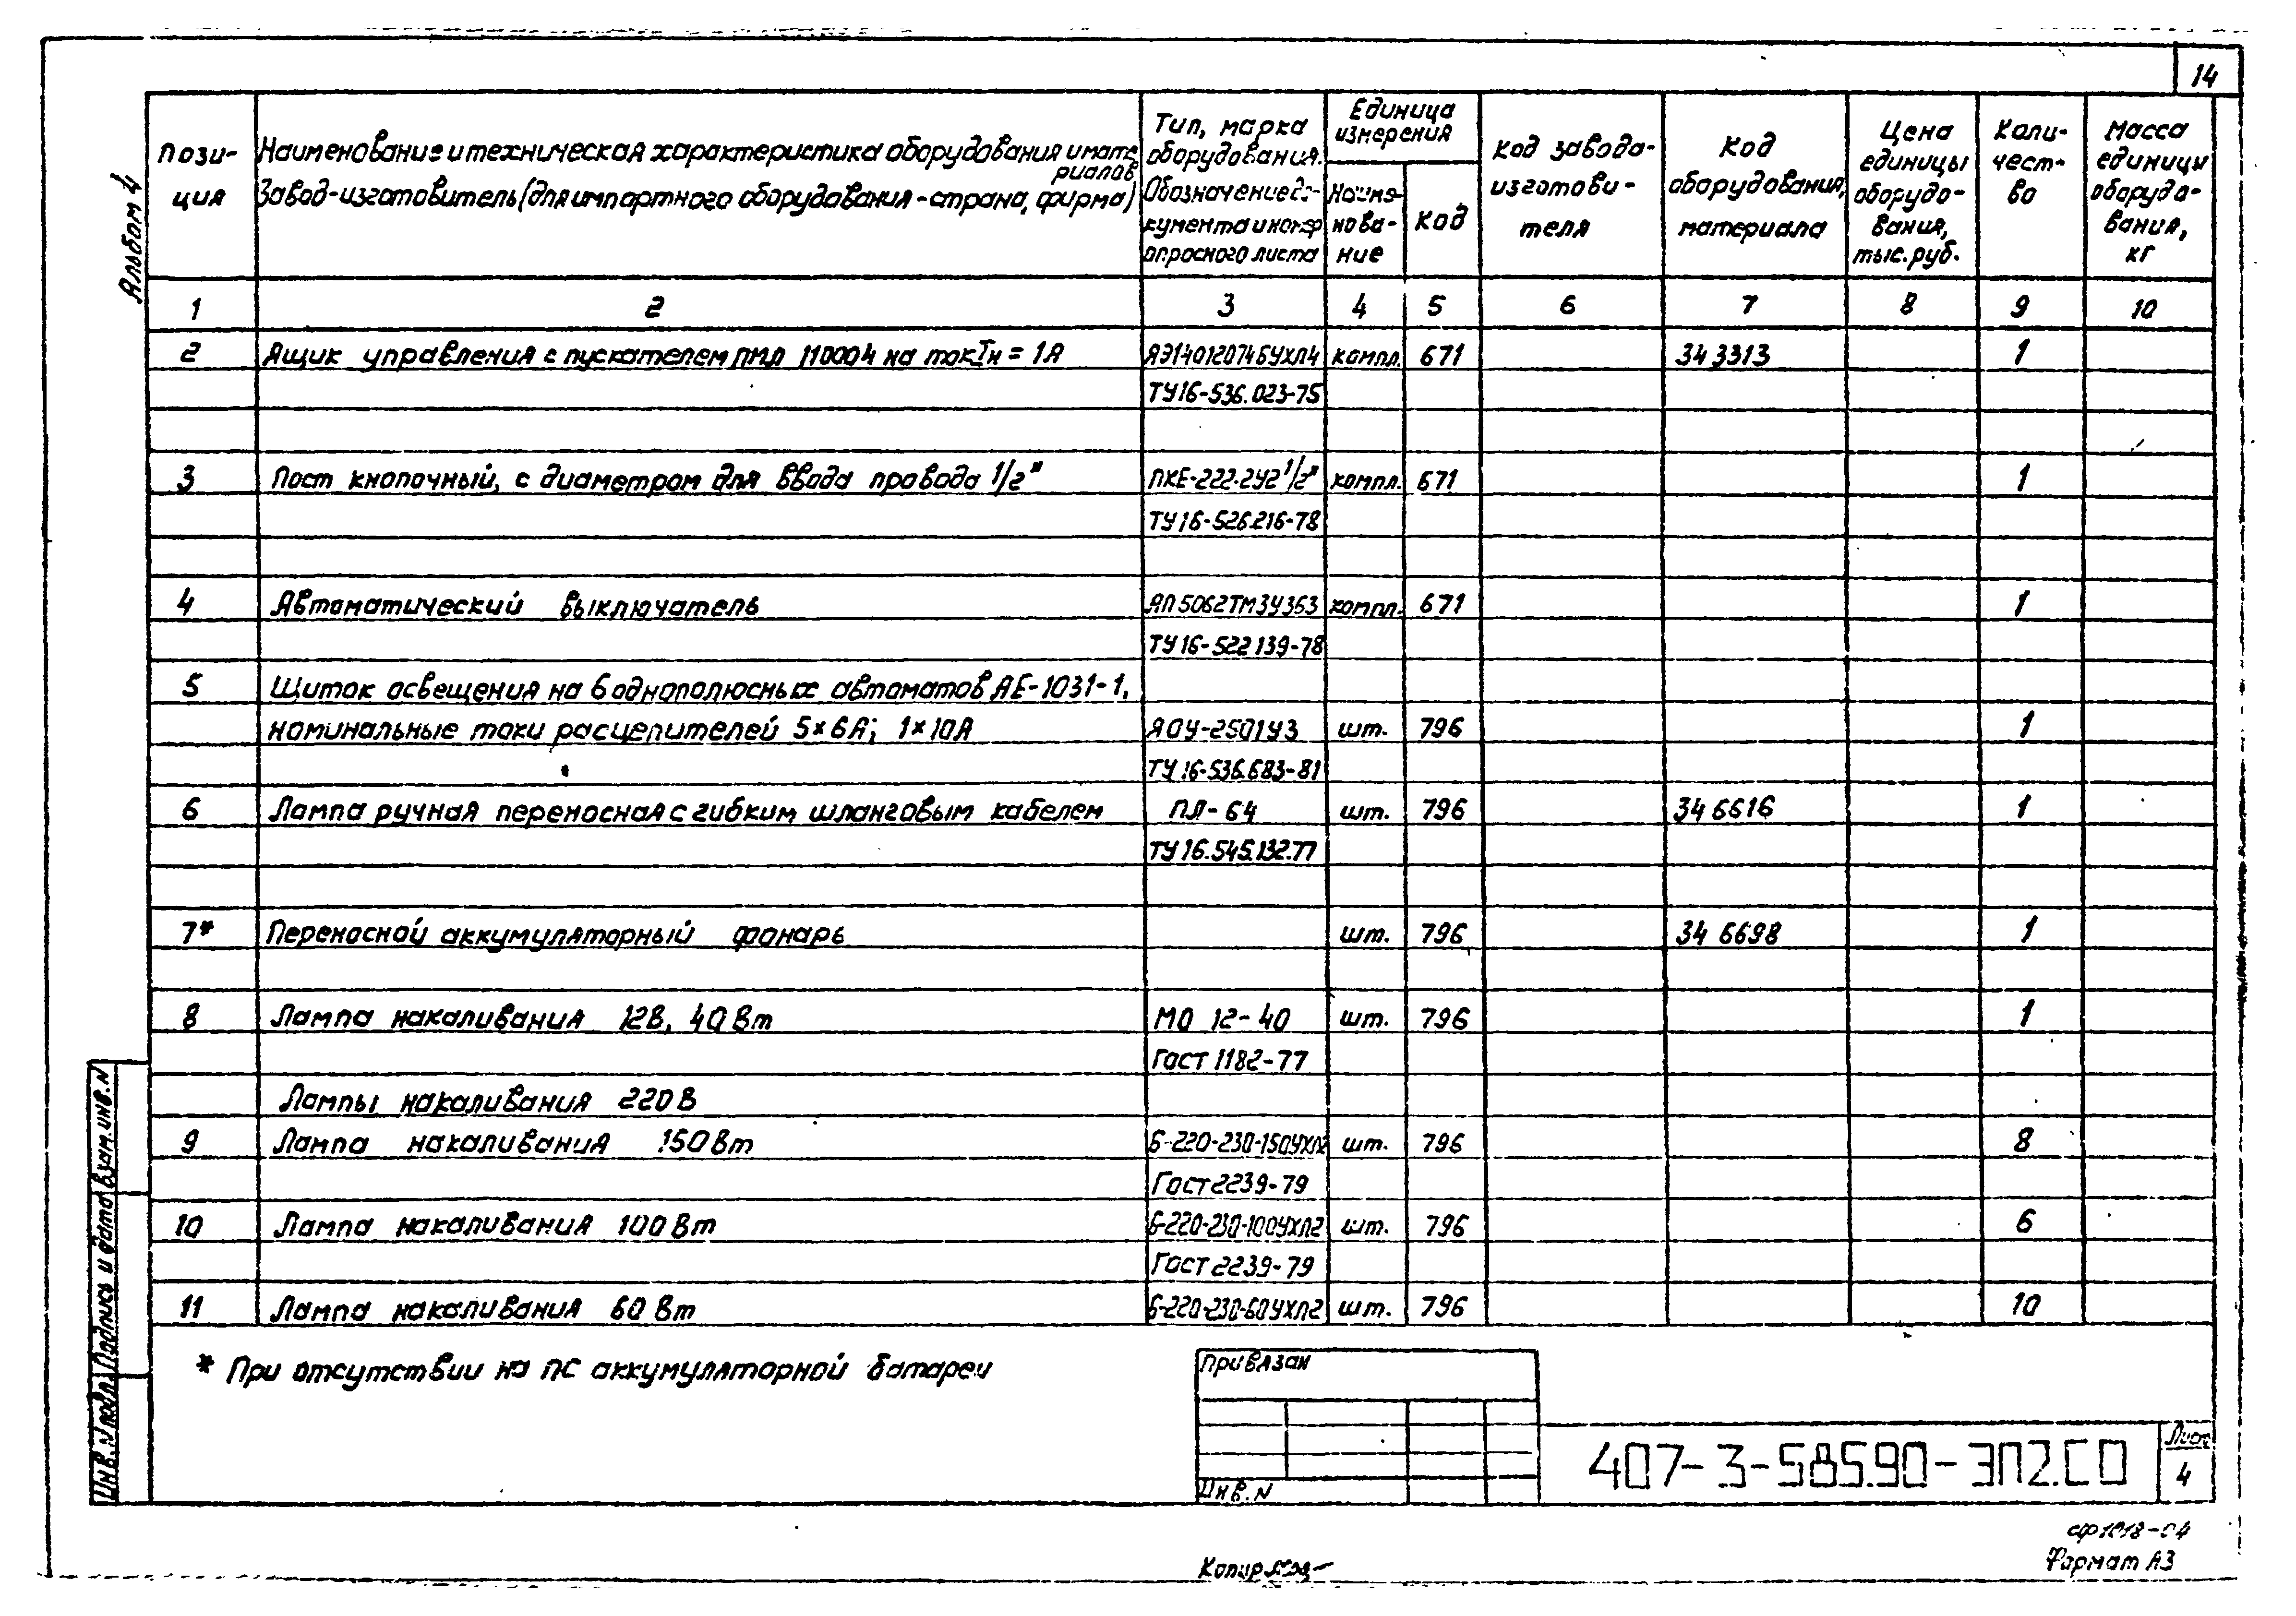 14
Альбом 4
Пози-
ция
Наименование и техническая характеристика оборудования и мате
риалов
Завод-изготовитель (для импортного оборудования - страна, фирма)
Тип, марка
оборудования.
Обозначение до-
кумента и номер
опросного листа
Единица
измерения
Наиме-
нова-
ние
Код
Код завода-
изготови-
теля
Код
оборудования,
материала
Цена
единицы
оборудо-
вания,
тыс. руб.
Коли-
чест-
во
Масса
единицы
оборудо-
вания,
кг
1 2 3 4 5 6 7 8 9 10
2 Ящик управления с пускателем ПМЛ 110004 на ток Iн = 1А ЯЭ14012074БУХЛ4 компл. 671 34 3313 1
ТУ16-536.023-75
3 Пост кнопочный, с диаметром для ввода провода 1/2" ПКЕ-222-2У2 1/2" компл. 671 1
ТУ16-526.216-78
4 Автоматический выключатель АП5062ТМ3У3б3 компл. 671 1
ТУ16-522 139-78
5 Щиток освещения на 6 однополюсных автоматов АЕ-1031-1,
номинальные токи расцепителей 5×6А; 1×10А ЯОУ-2501У3 шт. 796 1
ТУ16-536.683-81
6 Лампа ручная переносная с гибким шланговым кабелем ПЛ-64 шт. 796 34 6616 1
ТУ16.545.132.77
7* Переносной аккумуляторный фонарь шт. 796 34 6698 1
8 Лампа накаливания 12В, 40Вт МО 12-40 шт. 796 1
Гост 1182-77
Лампы накаливания 220В
9 Лампа накаливания 150Вт Б-220-230-150УХЛ2 шт. 796 8
Гост 2239-79
10 Лампа накаливания 100Вт Б-220-230-100УХЛ2 шт. 796 6
Гост 2239-79
11 Лампа накаливания 60Вт Б-220-230-60УХЛ2 шт. 796 10
* При отсутствии на ПС аккумуляторной батареи
Привязан
Инв. N
407-3-585.90-ЭП2.СО
Лист
4
Инв. N подл. Подпись и дата Взам. инв. N
сф 1018-04
Копир
Формат А3